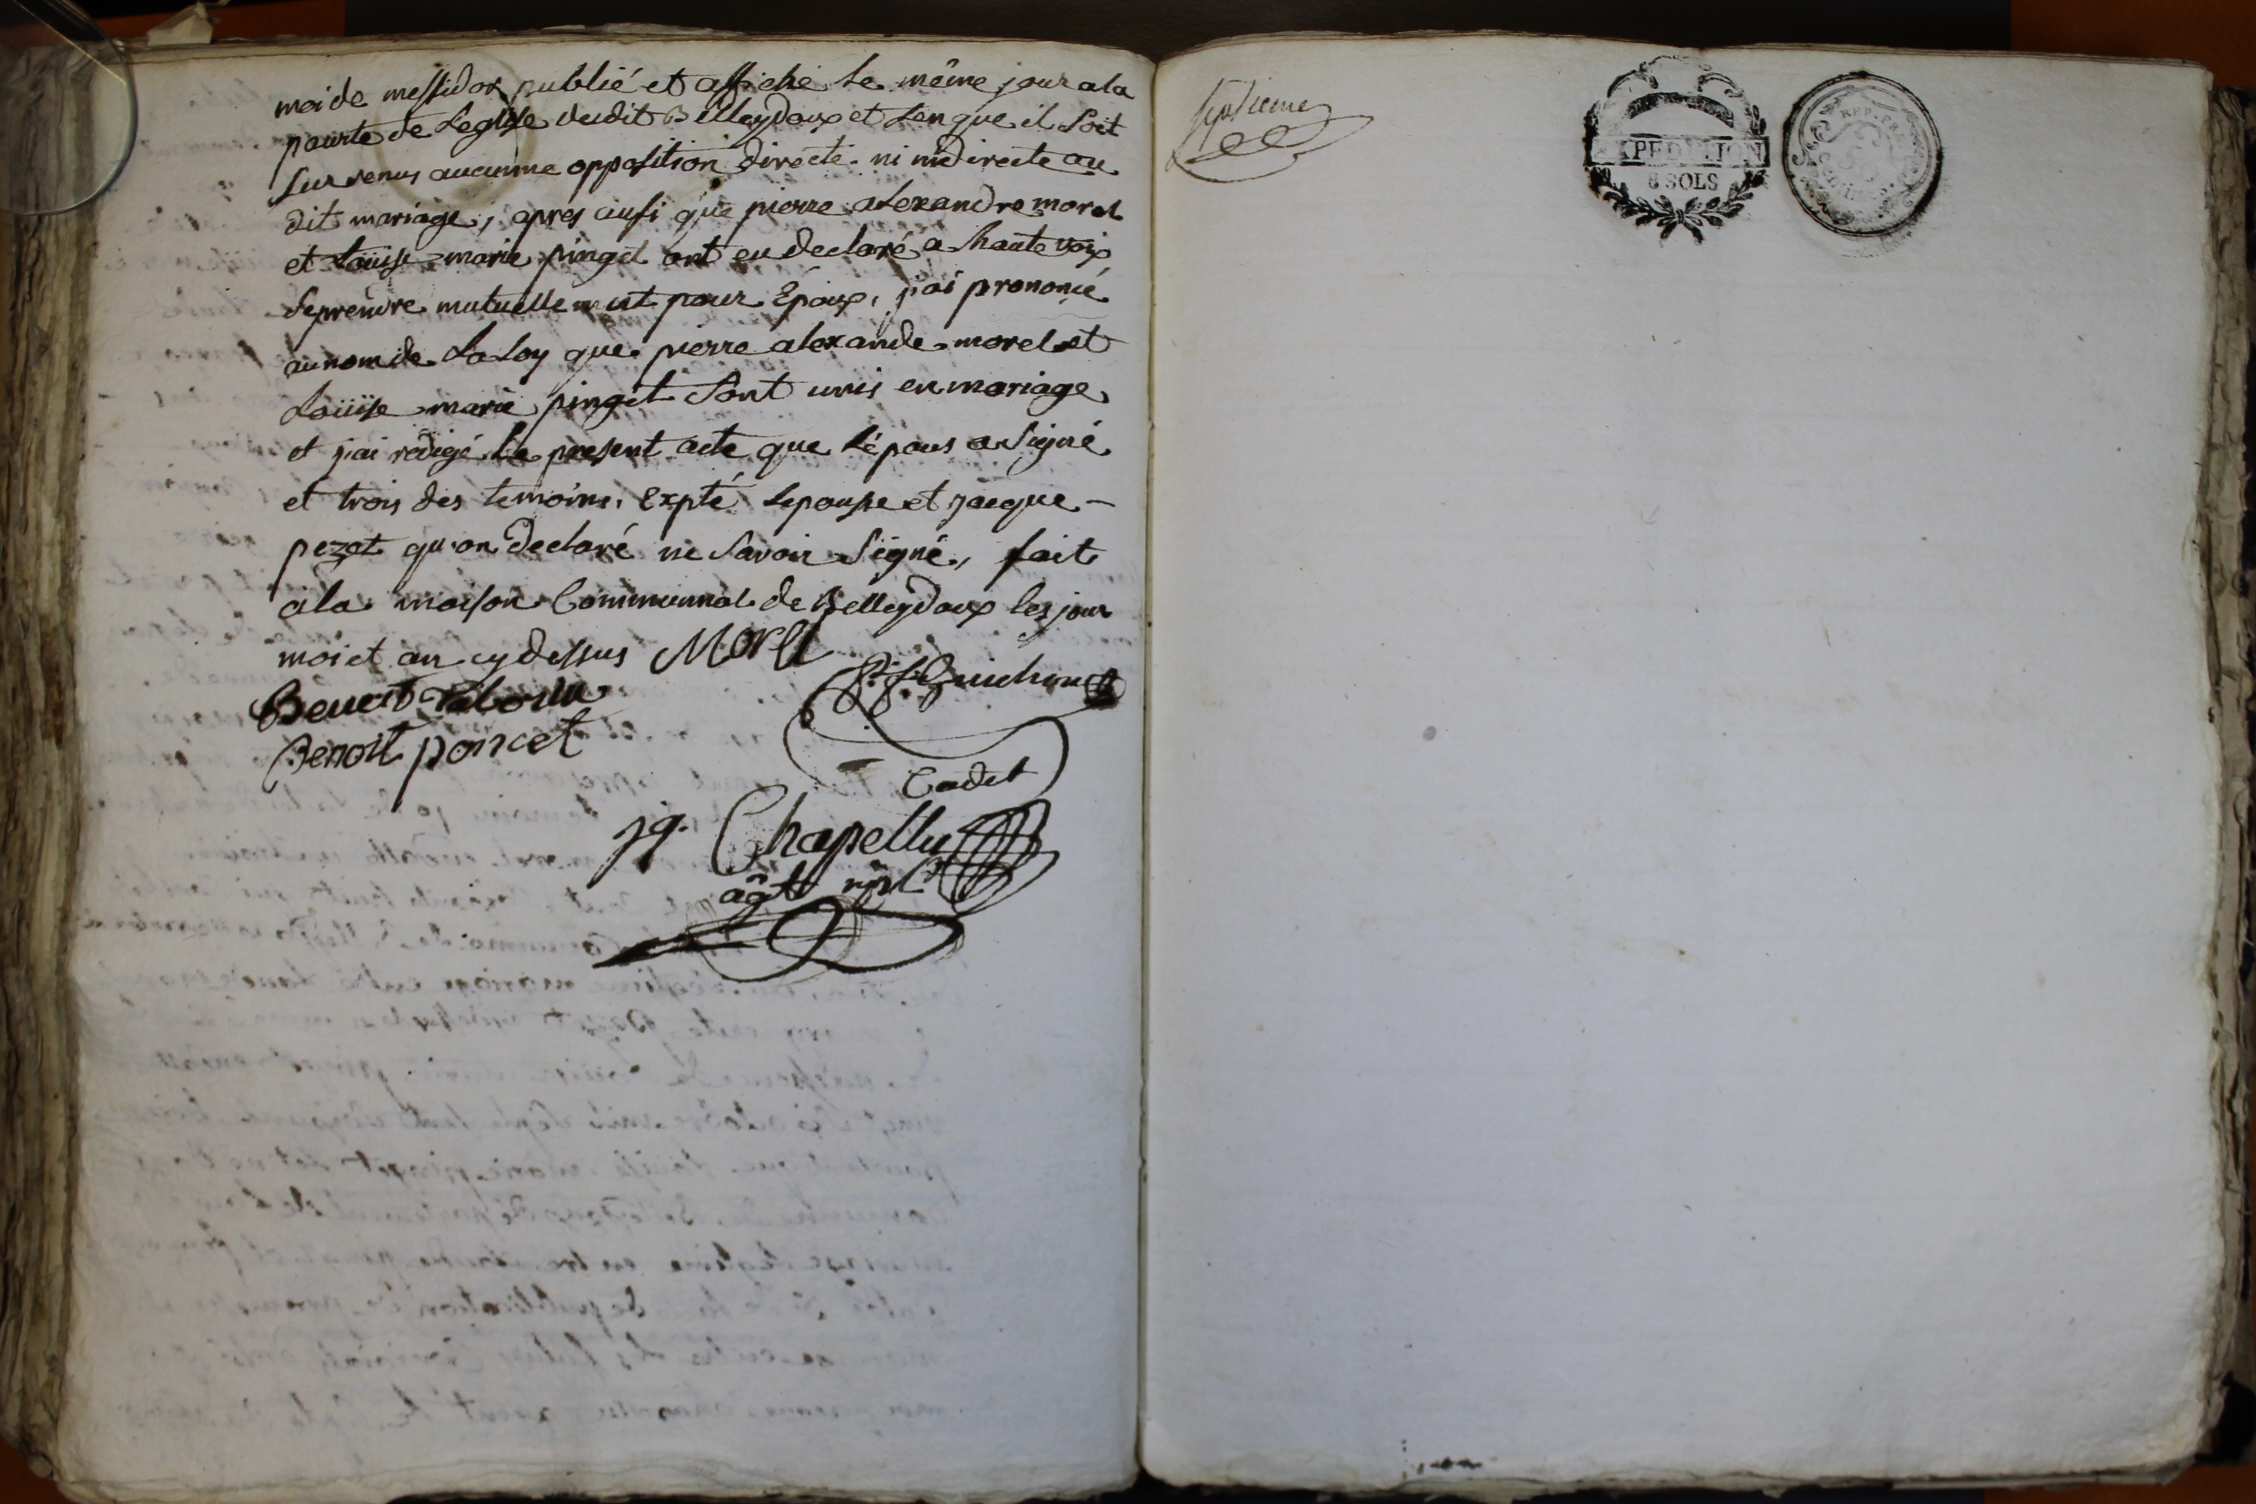 moi de messidor publié et affiché le même jour a la
pourte de Leglise dudit Belleydoux et sen que il soit
survenus aucunne opposition directe ni indirecte au
dit mariage, apres aussi que pierre alexandre morel
et Louise marie pinget ont eu declaré a haute voix
se prendre mutuellement pour Époux, j'ai prononcé
au nom de La Loy que pierre alexande morel et
Loüise marie pinget sont unis en mariage
et j'ai redigé Le present acte que Lépous a signé
et trois des temoins, Expté Lepouse et jacque -
pezat qu'on declaré ne savoir signé, fait
a la maison Communnal de Belleydoux les jour
moi et an cy dessus Morel
Benoit
Benoit poncet
Cadet
jq. Chapellu
agt
septieme
EXPEDITION
6 SOLS
REP. FRA.